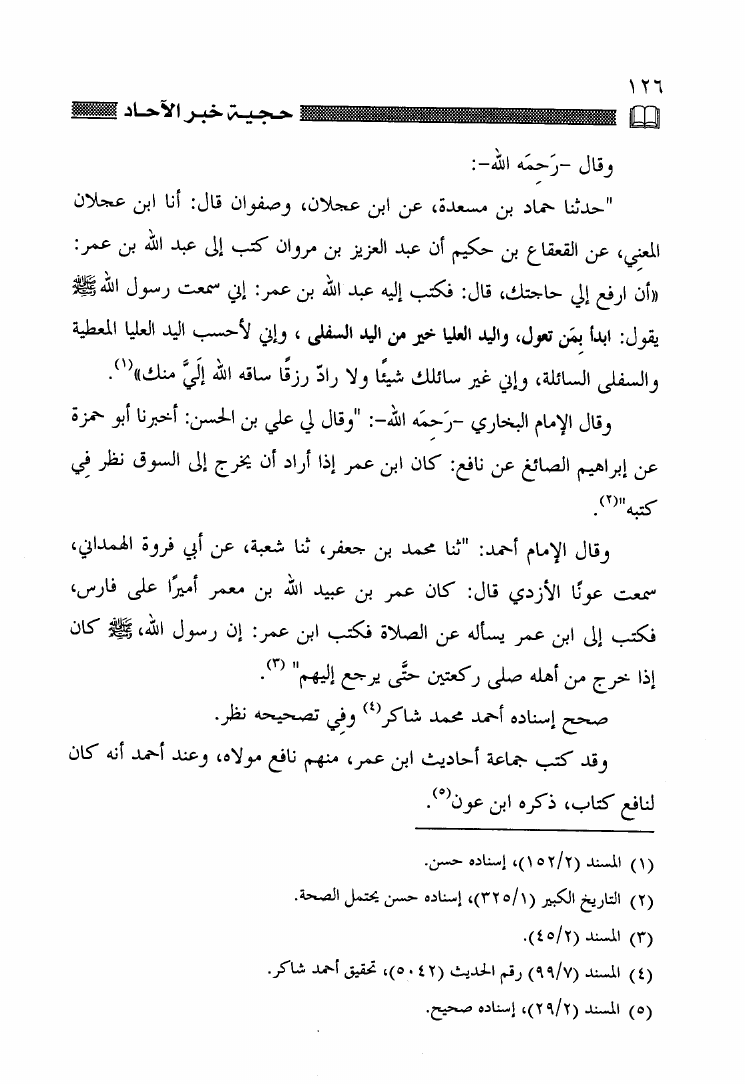 ١٢٦
حجية خبر الآحاد
وقال -رَحِمَه الله-:
"حدثنا حماد بن مسعدة، عن ابن عجلان، وصفوان قال: أنا ابن عجلان
المعنِي، عن القعقاع بن حكيم أن عبد العزيز بن مروان كتب إلى عبد الله بن عمر:
«أن ارفع إلي حاجتك، قال: فكتب إليه عبد الله بن عمر: إني سمعت رسول الله ﷺ
يقول: ابدأ بِمَن تعول، واليد العليا خير من اليد السفلى ، وإني لأحسب اليد العليا المعطية
والسفلى السائلة، وإني غير سائلك شيئًا ولا رادّ رزقًا ساقه الله إلَيَّ منك»(١).
وقال الإمام البخاري -رَحِمَه الله-: "وقال لي علي بن الحسن: أخبرنا أبو حمزة
عن إبراهيم الصائغ عن نافع: كان ابن عمر إذا أراد أن يخرج إلى السوق نظر فِي
كتبه"(٢).
وقال الإمام أحمد: "ثنا محمد بن جعفر، ثنا شعبة، عن أبي فروة الهمداني،
سمعت عونًا الأزدي قال: كان عمر بن عبيد الله بن معمر أميرًا على فارس،
فكتب إلى ابن عمر يسأله عن الصلاة فكتب ابن عمر: إن رسول الله، ﷺ كان
إذا خرج من أهله صلى ركعتين حتَّى يرجع إليهم" (٣).
صحح إسناده أحمد محمد شاكر(٤) وفِي تصحيحه نظر.
وقد كتب جماعة أحاديث ابن عمر، منهم نافع مولاه، وعند أحمد أنه كان
لنافع كتاب، ذكره ابن عون(٥).
(١) المسند (١٥٢/٢)، إسناده حسن.
(٢) التاريخ الكبير (٣٢٥/١)، إسناده حسن يحتمل الصحة.
(٣) المسند (٤٥/٢).
(٤) المسند (٩٩/٧) رقم الحديث (٥٠٤٢)، تحقيق أحمد شاكر.
(٥) المسند (٢٩/٢)، إسناده صحيح.